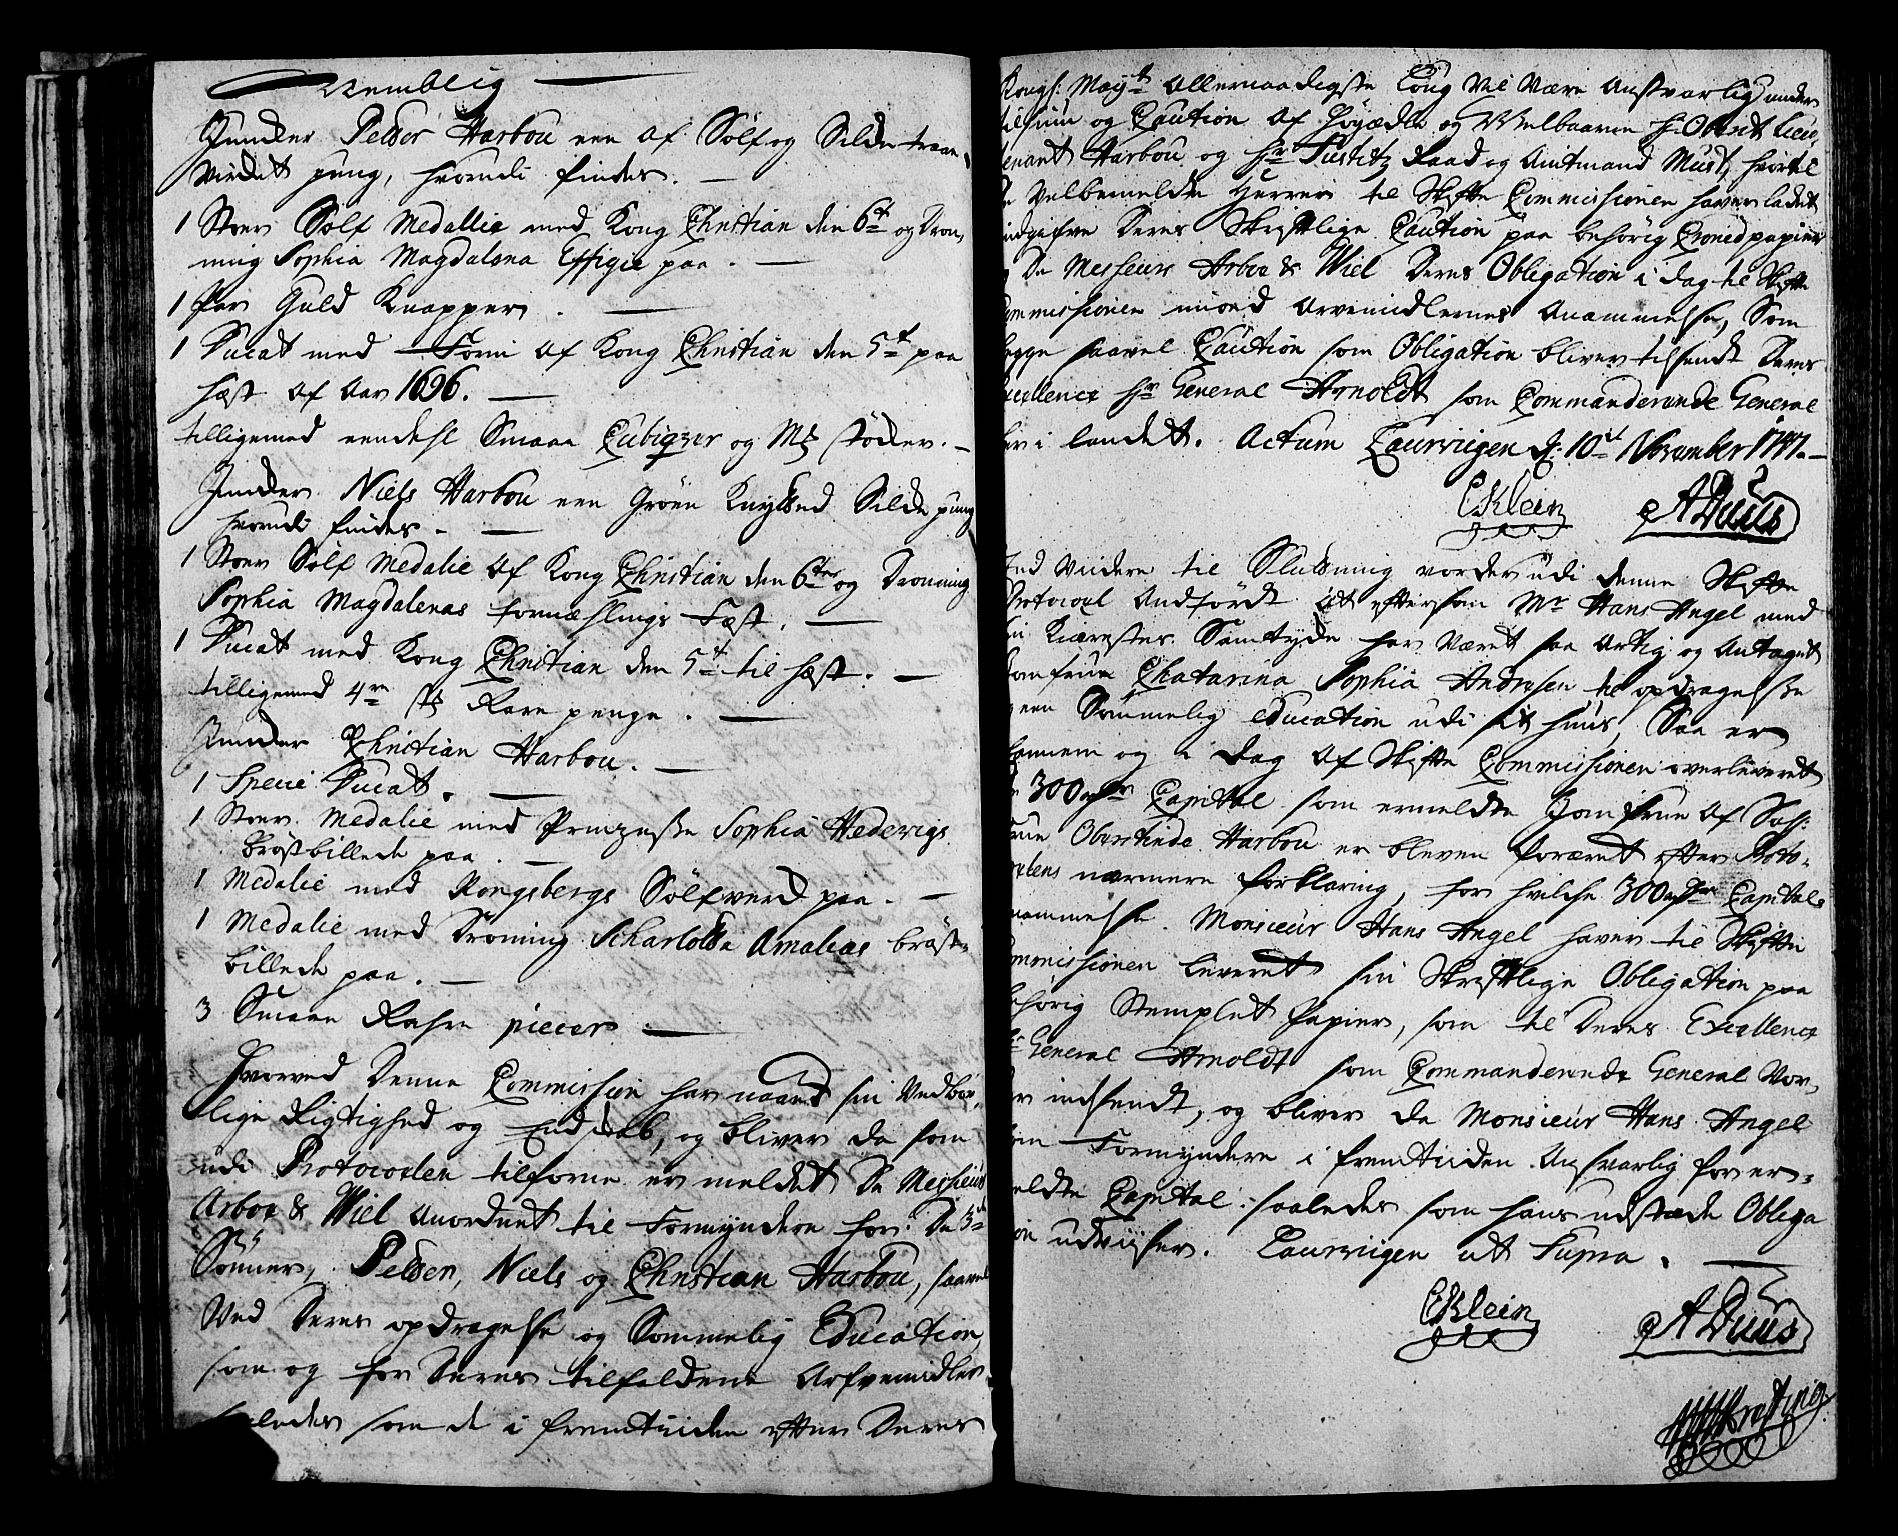 Nemblig
Junker Peder Harbou een af Sölf og Silke traae
Virket pung, hvorudi findes.
1 Stor Sölf Medallie med Kong Christian den 6te og Dron,
ning Sophia Magdalena Effigie paa.
1 Par Guld Knapper.
1 Ducat med Form af Kong Christian den 5t paa
Hæst af Aar 1696.
tilligemed eendehl Smaae Cubiqver og Mk støder.
Junker Niels Harbou een Grøen Knytted Silke pung
hvorudi findes.
1 Stor Sölf Medalie af Kong Christian den 6tes og Dronning
Sophia Magdalenas formæhlings Fæst.
1 Ducat med Kong Christian den 5t til Hæst.
tilligemed 4re stk Rare penge.
Junker Christian Harbou.
1 Specie Ducat.
1 Stor Medalie med Prinzesse Sophia Hedevigs
bröstbillede paa.
1 Medalie med Kongsbergs Sölfverk paa.
1 Medalie med Droning Scharlotta Amalias bröst-
billede paa.
3 Smaae Rahre piecer.
Hvorved Denne Commission har naaed sin Vedbör,
lige Rigtighed og Endskab, og bliver da som
udi Protocollen tilforne er meldet De Messieurs
Arboe & Wiel anordnet til Formyndere for De 3de
Sönner, Peder, Niels og Christian Harbou, saavel
Ved Deres opdragelse og Sömmelig Education,
som og for Deres tilfaldene Arfvemidler
saaledes som de i fremtiiden efter Deres
Kongl: Mayts allernaadigste Loug vil være Ansvarlig under
tilsiun og Caution af Höyædle og Welbaarne Hr Obrist Lieu,
tenant Harbou og Hr Justitz Raad og Amtmand Must, hvortil
de Velbemeldte Herrer til Skifte Commissionen haver ladet
indgifve Deres Skriftlige Caution paa behörig Croned papiir
og De Messieurs Arboe & Wiel Deres Obligation i dag til Skifte
Commissionen imod Arvemidlernes Anammelse, Som
begge saavel Caution som Obligation bliver tilsendt Deres
Excellence Hr General Arnoldt som Commanderende General
her i landet. Actum Laurwiigen d: 10de November 1747.
C Klein A Duus
End Videre til Slutning vorder udi denne Skifte
Protocoll Anfördt at eftersom Mr Hans Angel med
sin Kiærestes Samtyche har været saa Artig og Antaget
Jomfrue Chatarina Sophia Andresen til opdragelse
og een Sömmelig education udi sit huus, Saa er
hannem og i Dag af Skifte Commissionen overleveret
de 300 rdr Capital som ermeldte Jomfrue af Sal:
Frue Oberstinde Harbou er bleven foræret efter Proto-
collens nærmere forklaring, for hvilche 300 rdr Capitals
anammelse Monsieur Hans Angel haver til Skifte
Commissionen leveret sin Skriftlige Obligation paa
behörig Stemplet Papiir, som til Deres Excellence
Hr General Arnoldt som Commanderende General Vor,
der indsendt, og bliver da Monsieur Hans Angel
som Formyndere i fremtiiden Ansvarlig for er-
meldte Capital saaledes som hans udstæde Obliga
tion udviiser. Laurwiigen ut Supra.
C Klein A Duus